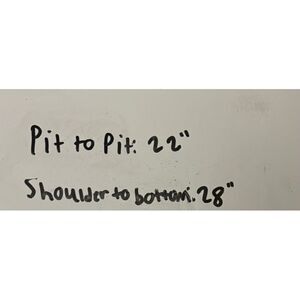 Pit to Pit: 22"
Shoulder to bottom: 28"